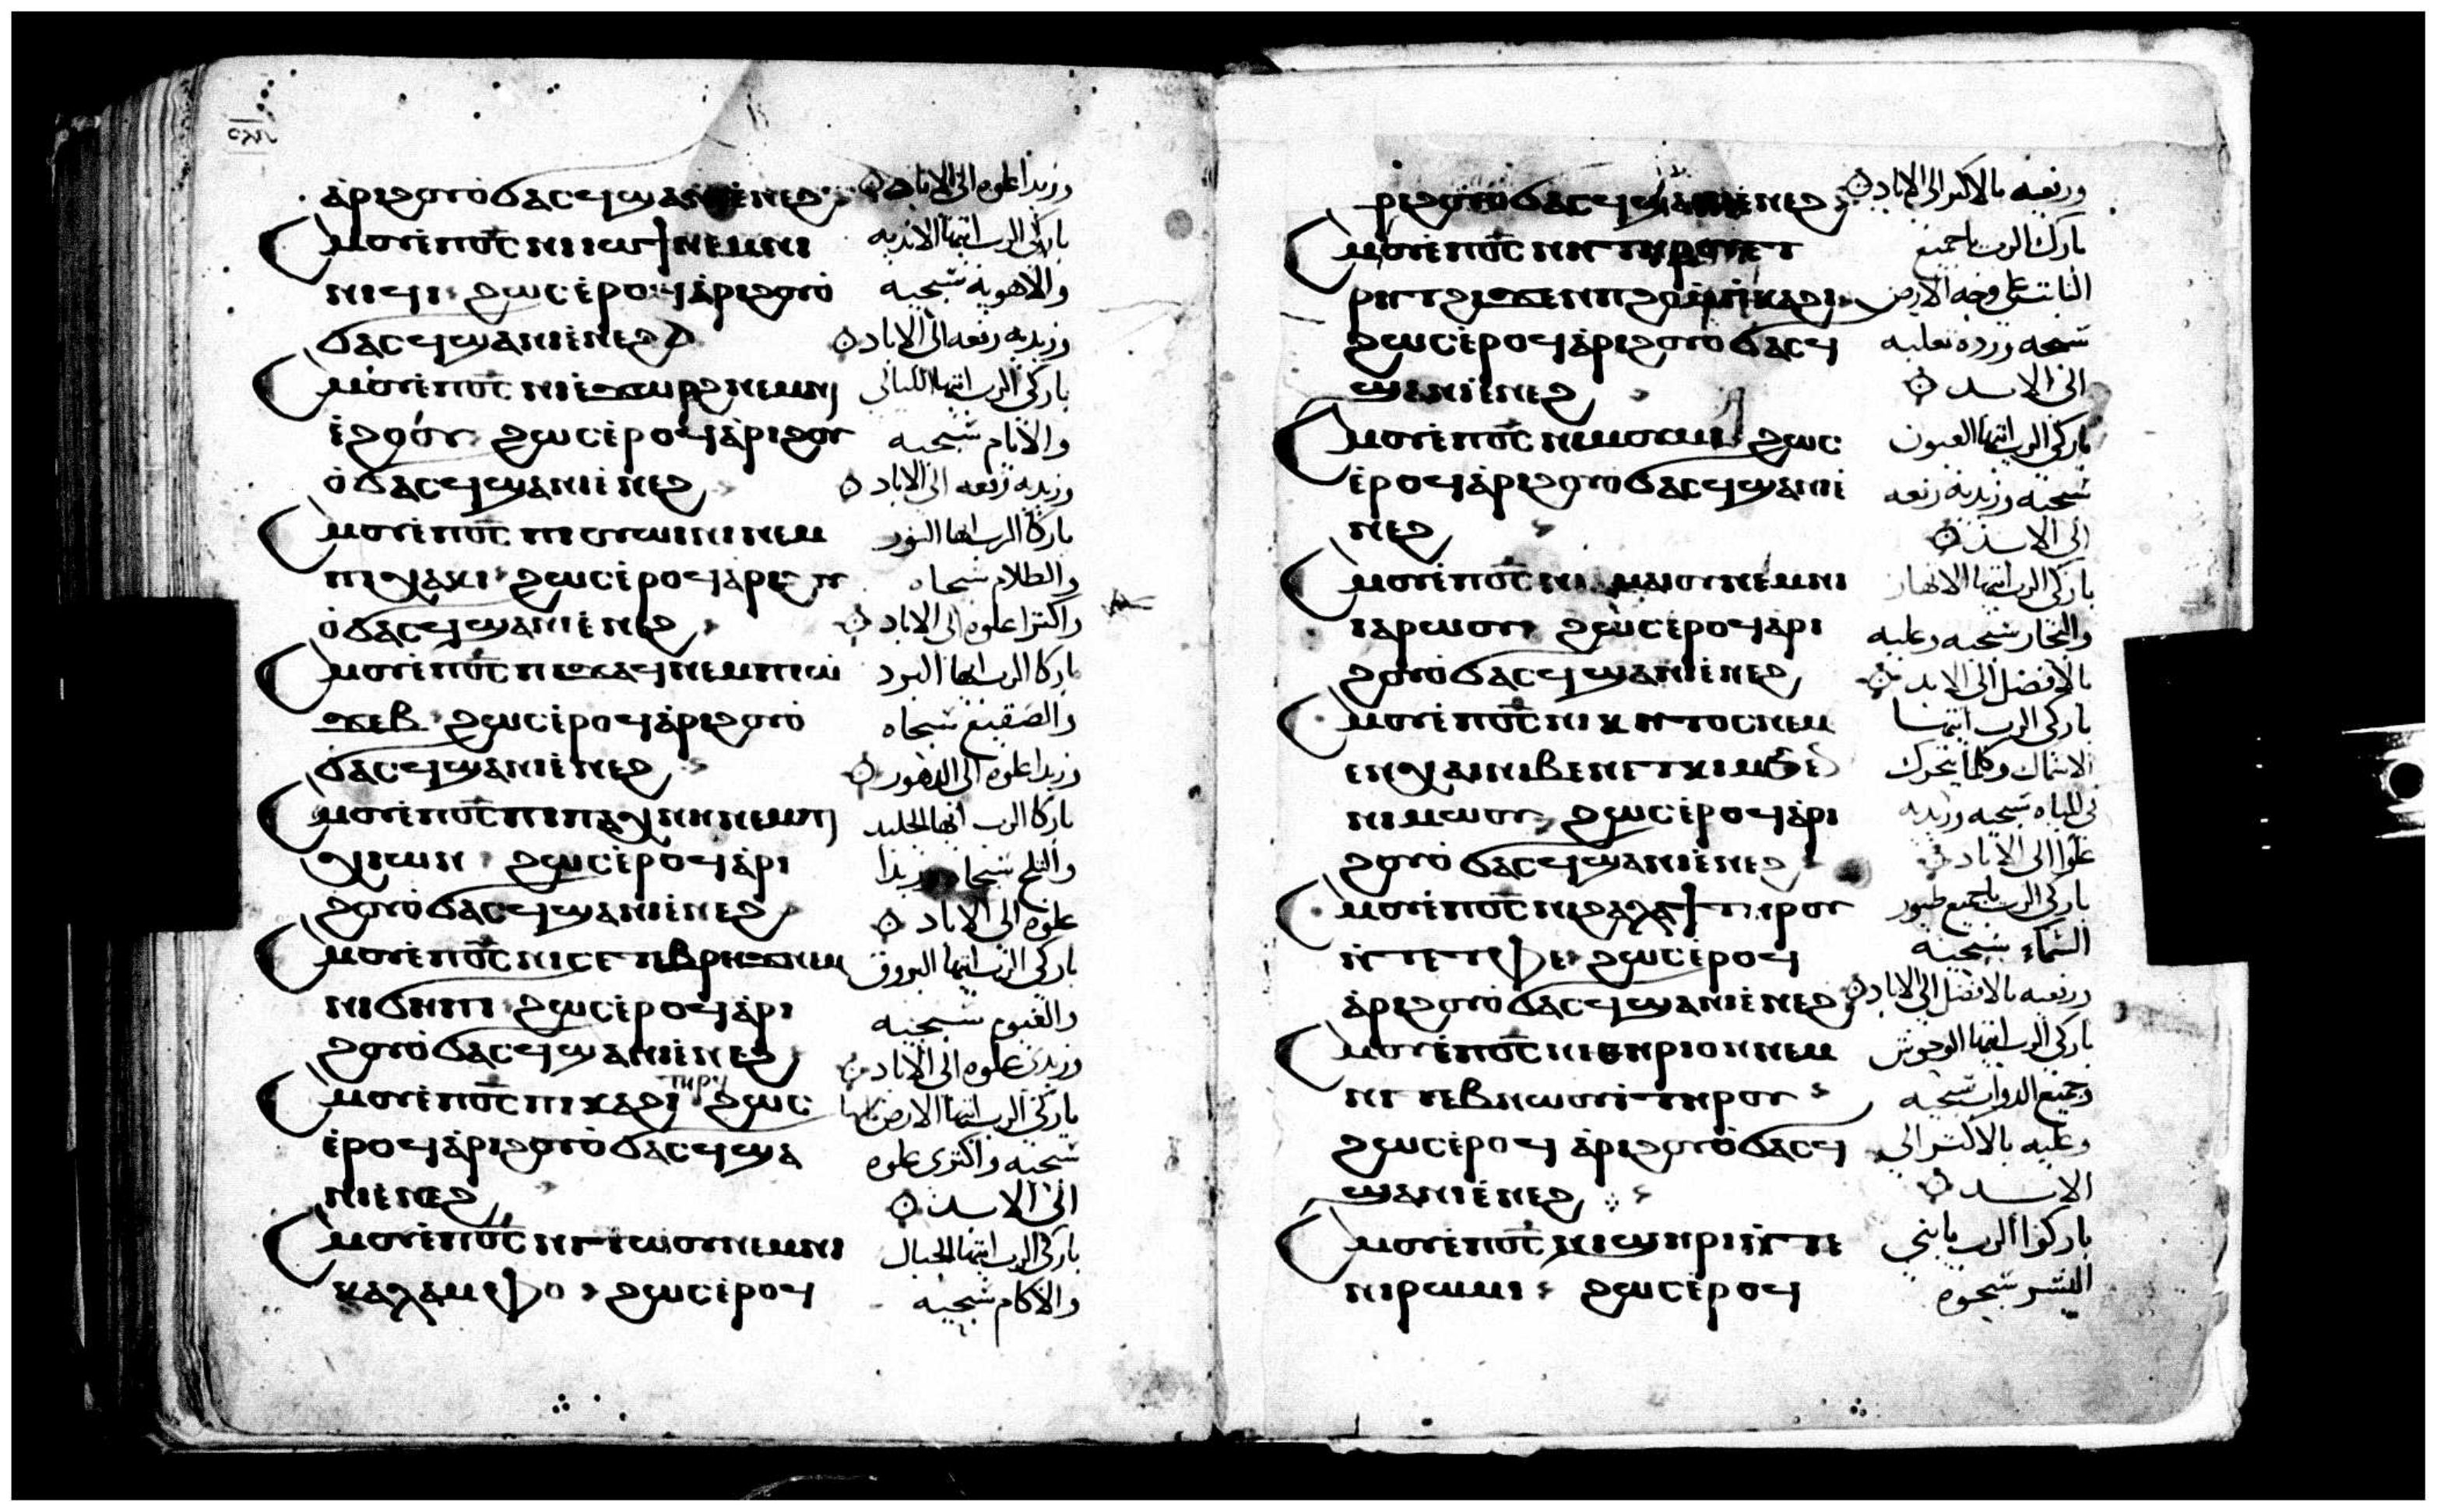 ⲁⲣⲓϩⲟⲩⲟ̀ϭⲁⲥϥϣⲁⲛⲓⲉ̀ⲛⲉϩ وزيدا علوه الى الاباد
Ⲥⲙⲟⲩⲉ̀ⲡⲟ̅ⲥ̅ ⲛⲓⲓⲱϯ ⲛⲉⲙⲛⲓ باركى الرب ايتها الانديه
ⲛⲓϥⲓ ϩⲱⲥⲉ̀ⲣⲟϥⲁ̀ⲣⲓϩⲟⲩⲟ̀ والاهوية سبحيه
ϭⲁⲥϥϣⲁⲛⲓⲉ̀ⲛⲉϩ وزيديه رفعه الى الاباد
Ⲥⲙⲟⲩⲉ̀ⲡⲟ̅ⲥ̅ ⲛⲓⲉ̀ϫⲱⲣϩ ⲛⲉⲙⲛⲓ باركى الرب ايتها الليالى
ⲉ̀ϩⲟⲟⲩ ϩⲱⲥⲉ̀ⲣⲟϥⲁ̀ⲣⲓϩⲟⲩ والايام سبحيه
ⲟ̀ϭⲁⲥϥϣⲁⲛⲓⲉ̀ⲛⲉϩ وزيديه رفعه الى الاباد
Ⲥⲙⲟⲩⲉ̀ⲡⲟ̅ⲥ̅ ⲡⲓⲟⲩⲱⲓⲛⲓ ⲛⲉⲙ باركا الرب ايها النور
ⲡⲓⲭⲁⲕⲓ ϩⲱⲥⲉ̀ⲣⲟϥⲁ̀ⲣⲓϩⲟⲩ والظلام سبحاه
ⲟ̀ϭⲁⲥϥϣⲁⲛⲓⲉ̀ⲛⲉϩ واكثرا علوه الى الاباد
Ⲥⲙⲟⲩⲉ̀ⲡⲟ̅ⲥ̅ ⲡⲓϫⲁϥ ⲛⲉⲙⲡⲓⲱ̀ باركا الرب ايها البرد
ϫⲉⲃ ϩⲱⲥⲉ̀ⲣⲟϥⲁ̀ⲣⲓϩⲟⲩⲟ̀ والصقيع سبحاه
ϭⲁⲥϥϣⲁⲛⲓⲉ̀ⲛⲉϩ وزيدا علوه الى الدهور
Ⲥⲙⲟⲩⲉ̀ⲡⲟ̅ⲥ̅ ⲡⲓⲡⲁⲭⲛⲏ ⲛⲉⲙⲡⲓ باركا الرب ايها الجليد
ⲭⲓⲱⲛ ϩⲱⲥⲉ̀ⲣⲟϥⲁ̀ⲣⲓ والثلج سبحاه وزيدا
ϩⲟⲩⲟ̀ϭⲁⲥϥϣⲁⲛⲓⲉ̀ⲛⲉϩ علوه الى الاباد
Ⲥⲙⲟⲩⲉ̀ⲡⲟ̅ⲥ̅ ⲛⲓⲥⲉⲧⲉⲃⲣⲏϫ ⲛⲉⲙ باركى الرب ايتها البروق
ⲛⲓϭⲏⲡⲓ ϩⲱⲥⲉ̀ⲣⲟϥⲁ̀ⲣⲓ والغيوم سبحيه
ϩⲟⲩⲟ̀ϭⲁⲥϥϣⲁⲛⲓⲉ̀ⲛⲉϩ وزيدى علوه الى الاباد
Ⲥⲙⲟⲩⲉ̀ⲡⲟ̅ⲥ̅ ⲡⲓⲕⲁϩⲓ ⲧⲏⲣϥ ϩⲱⲥ باركى الرب ايتها الارض كلها
ⲉ̀ⲣⲟϥⲁ̀ⲣⲓϩⲟⲩⲟ̀ϭⲁⲥϥϣⲁ سبحيه واكثرى علوه
ⲛⲓⲉⲛⲉϩ الى الابد
Ⲥⲙⲟⲩⲉ̀ⲡⲟ̅ⲥ̅ ⲛⲓⲧⲱⲟⲩ ⲛⲉⲙⲛⲓ باركى الرب ايتها الجبال
ⲕⲁⲗⲁⲙⲫⲟ ϩⲱⲥⲉ̀ⲣⲟϥ والاكام سبحيه
ⲣⲓϩⲟⲩⲟ̀ϭⲁⲥϥϣⲁⲛⲓⲉ̀ⲛⲉϩ ورفعيه بالاكثر الى الاباد
Ⲥⲙⲟⲩⲉ̀ⲡⲟ̅ⲥ̅ ⲛⲏ ⲧⲏⲣⲟⲩ ⲉⲧ بارك الرب ياجميع
ⲣⲏⲧ ϩⲓϫⲉⲛⲡϩⲟ ⲙ̀ⲡⲓⲕⲁϩⲓ النابتة على وجه الارض
ϩⲱⲥⲉ̀ⲣⲟϥⲁ̀ⲣⲓϩⲟⲩⲟ̀ϭⲁⲥϥ سبحه وزده تعليه
ϣⲁⲛⲓⲉ̀ⲛⲉϩ الى الابد
Ⲥⲙⲟⲩⲉ̀ⲡⲟ̅ⲥ̅ ⲛⲓⲙⲟⲩⲙⲓ ϩⲱⲥ باركى الرب ايتها العيون
ⲉ̀ⲣⲟϥⲁ̀ⲣⲓϩⲟⲩⲟ̀ϭⲁⲥϥϣⲁⲛⲓⲉ̀ سبحيه وزيديه رفعه
ⲛⲉϩ الى الابد
Ⲥⲙⲟⲩⲉ̀ⲡⲟ̅ⲥ̅ ⲛⲓ ⲁⲙⲁⲓⲟⲩ ⲛⲉⲙⲛⲓ باركى الرب ايتها الانهار
ⲓⲁⲣⲱⲟⲩ ϩⲱⲥⲉ̀ⲣⲟϥⲁ̀ⲣⲓ والبحار سبحيه وعليه
ϩⲟⲩⲟ̀ϭⲁⲥϥϣⲁⲛⲓⲉ̀ⲛⲉϩ بالافضل الى الابد
Ⲥⲙⲟⲩⲉ̀ⲡⲟ̅ⲥ̅ ⲛⲓⲕⲏⲧⲟⲥ ⲛⲉⲙ باركى الرب ايتها
ⲉⲛⲭⲁⲓ ⲛⲓⲃⲉⲛ ⲉⲧⲕⲓⲙ ϧⲉⲛ الاسماك وكلما يتحرك
ⲛⲓⲙⲱⲟⲩ ϩⲱⲥⲉ̀ⲣⲟϥⲁ̀ⲣⲓ فى المياه سبحيه وزيديه
ϩⲟⲩⲟ̀ϭⲁⲥϥϣⲁⲛⲓⲉ̀ⲛⲉϩ علوا الى الاباد
Ⲥⲙⲟⲩⲉ̀ⲡⲟ̅ⲥ̅ ⲛⲓϩⲁⲗⲁϯ ⲧⲏⲣⲟⲩ باركى الرب ياجميع طيور
ⲛ̀ⲧⲉⲧⲫⲉ ϩⲱⲥⲉ̀ⲣⲟϥ السماء سبحيه
ⲁ̀ⲣⲓϩⲟⲩⲟ̀ϭⲁⲥϥϣⲁⲛⲓⲉ̀ⲛⲉϩ ورفعيه بالافضل الى الاباد
Ⲥⲙⲟⲩⲉ̀ⲡⲟ̅ⲥ̅ ⲛⲓⲑⲏⲣⲓⲟⲛ ⲛⲉⲙ باركى الرب ايتها الوحوش
ⲛⲓⲧⲉⲃⲛⲱⲟⲩⲓ̀ ⲧⲏⲣⲟⲩ وجميع الدواب سبحيه
ϩⲱⲥⲉ̀ⲣⲟϥ ⲁ̀ⲣⲓϩⲟⲩⲟ̀ϭⲁⲥϥ وعليه بالاكثر الى
ϣⲁⲛⲓⲉ̀ⲛⲉϩ الابد
Ⲥⲙⲟⲩⲉ̀ⲡⲟ̅ⲥ̅ ⲛⲓϣⲏⲣⲓ ⲛ̀ⲧⲉ باركوا الرب يابنى
ⲛⲓⲣⲱⲙⲓ ϩⲱⲥⲉ̀ⲣⲟϥ البشر سبحوه